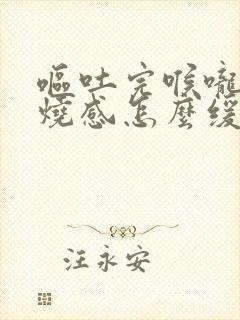 嘔吐完喉嚨
燒感怎麼緩
汪永安